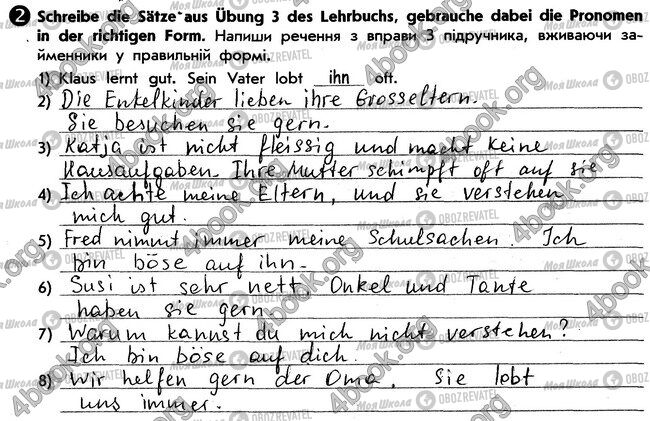 2 Schreibe die Sätze aus Übung 3 des Lehrbuchs, gebrauche dabei die Pronomen
in der richtigen Form. Напиши речення з вправи 3 підручника, вживаючи за-
йменники у правильній формі.
1) Klaus lernt gut. Sein Vater lobt ihn oft.
2) Die Enkelkinder lieben ihre Grosseltern.
Sie besuchen sie gern.
3) Katja ist nicht fleissig und macht keine
Hausaufgaben. Ihre Mutter schimpft oft auf sie
4) Ich achte meine Eltern, und sie verstehen
mich gut.
5) Fred nimmt immer meine Schulsachen. Ich
bin böse auf ihn.
6) Susi ist sehr nett. Onkel und Tante
haben sie gern
7) Warum kannst du mich nicht verstehen?
Ich bin böse auf dich.
8) Wir helfen gern der Oma. Sie lobt
uns immer.
4book.org
Моя Школа
OBOZREVATEL